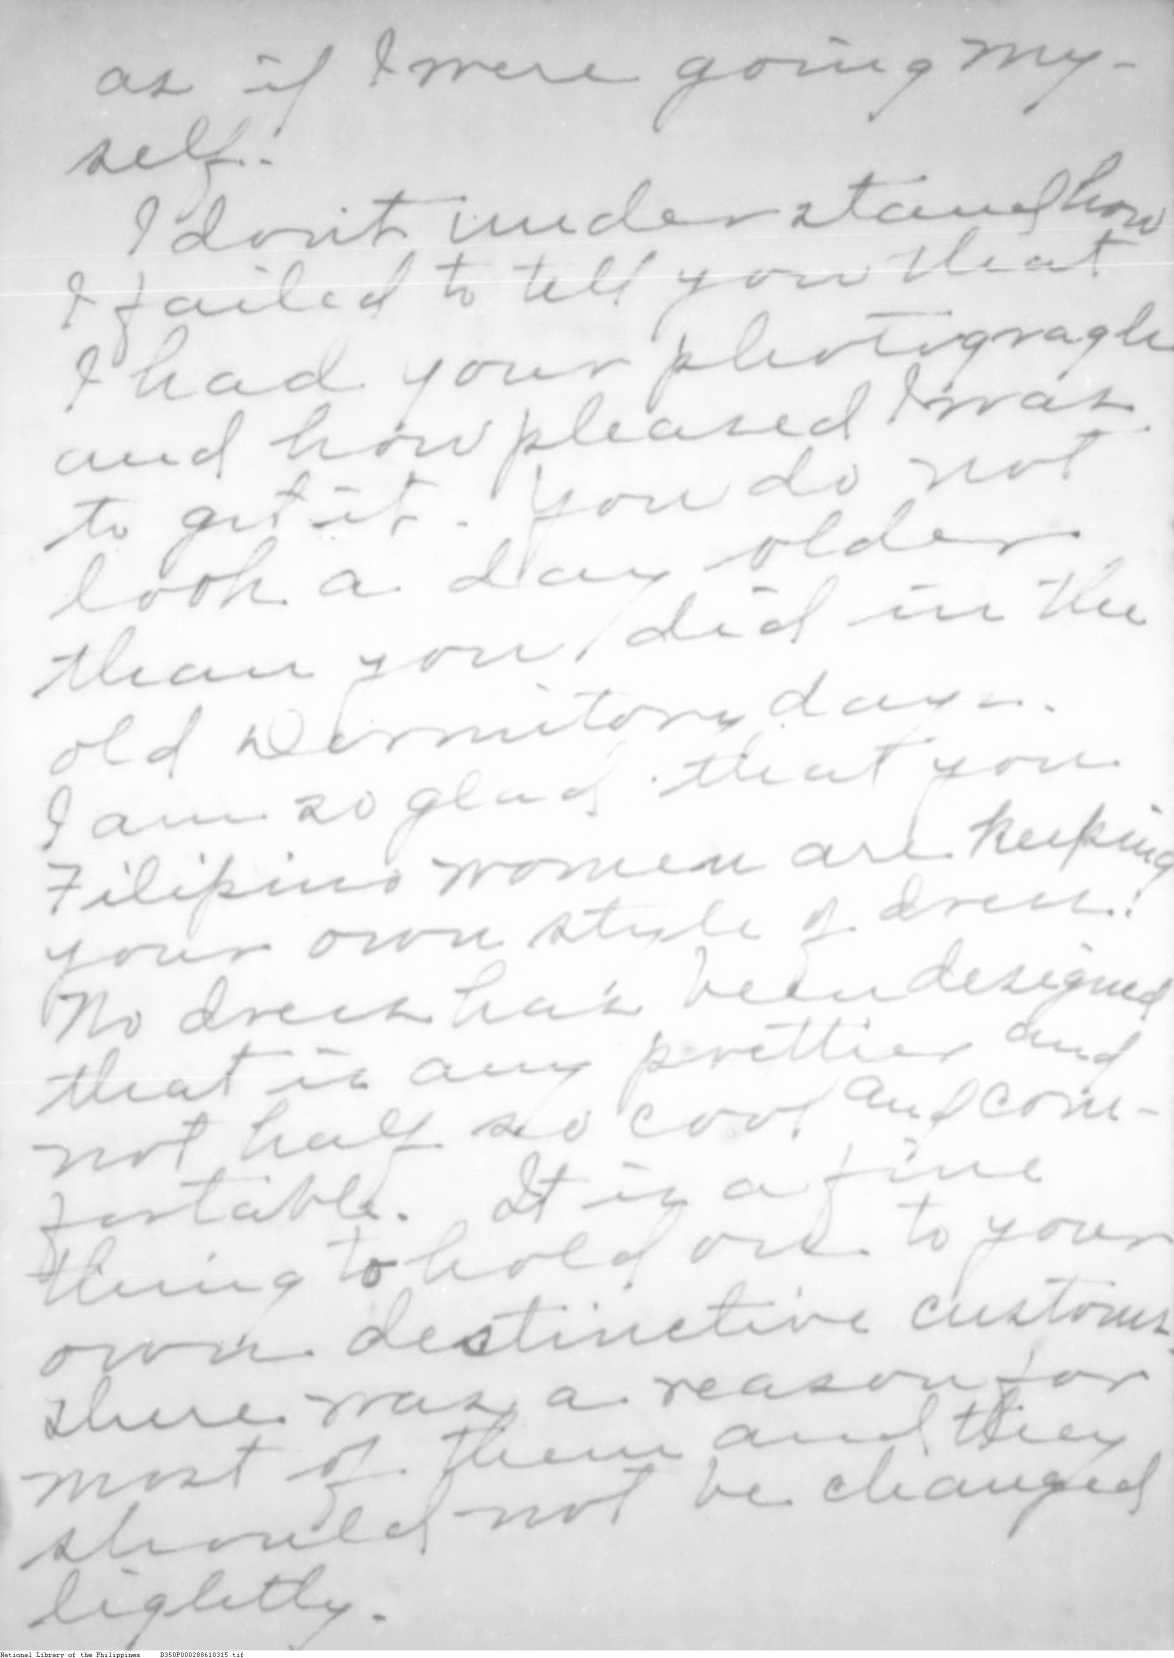 as if I were going my-
self.
I don't understand how
I failed to tell you that
I had your photograph
and how pleased I was
to get it. You do not
look a day older
than you did in the
old Dormitory days.
I am so glad that you
Filipino women are keeping
your own style of dress!
No dress has been designed
that is any prettier and
not half so cool and com-
fortable. It is a fine
thing to hold on to your
own destinctive customs.
There was a reason for
most of them and they
should not be changed
lightly.
National Library of the Philippines D350P000288610315.tif